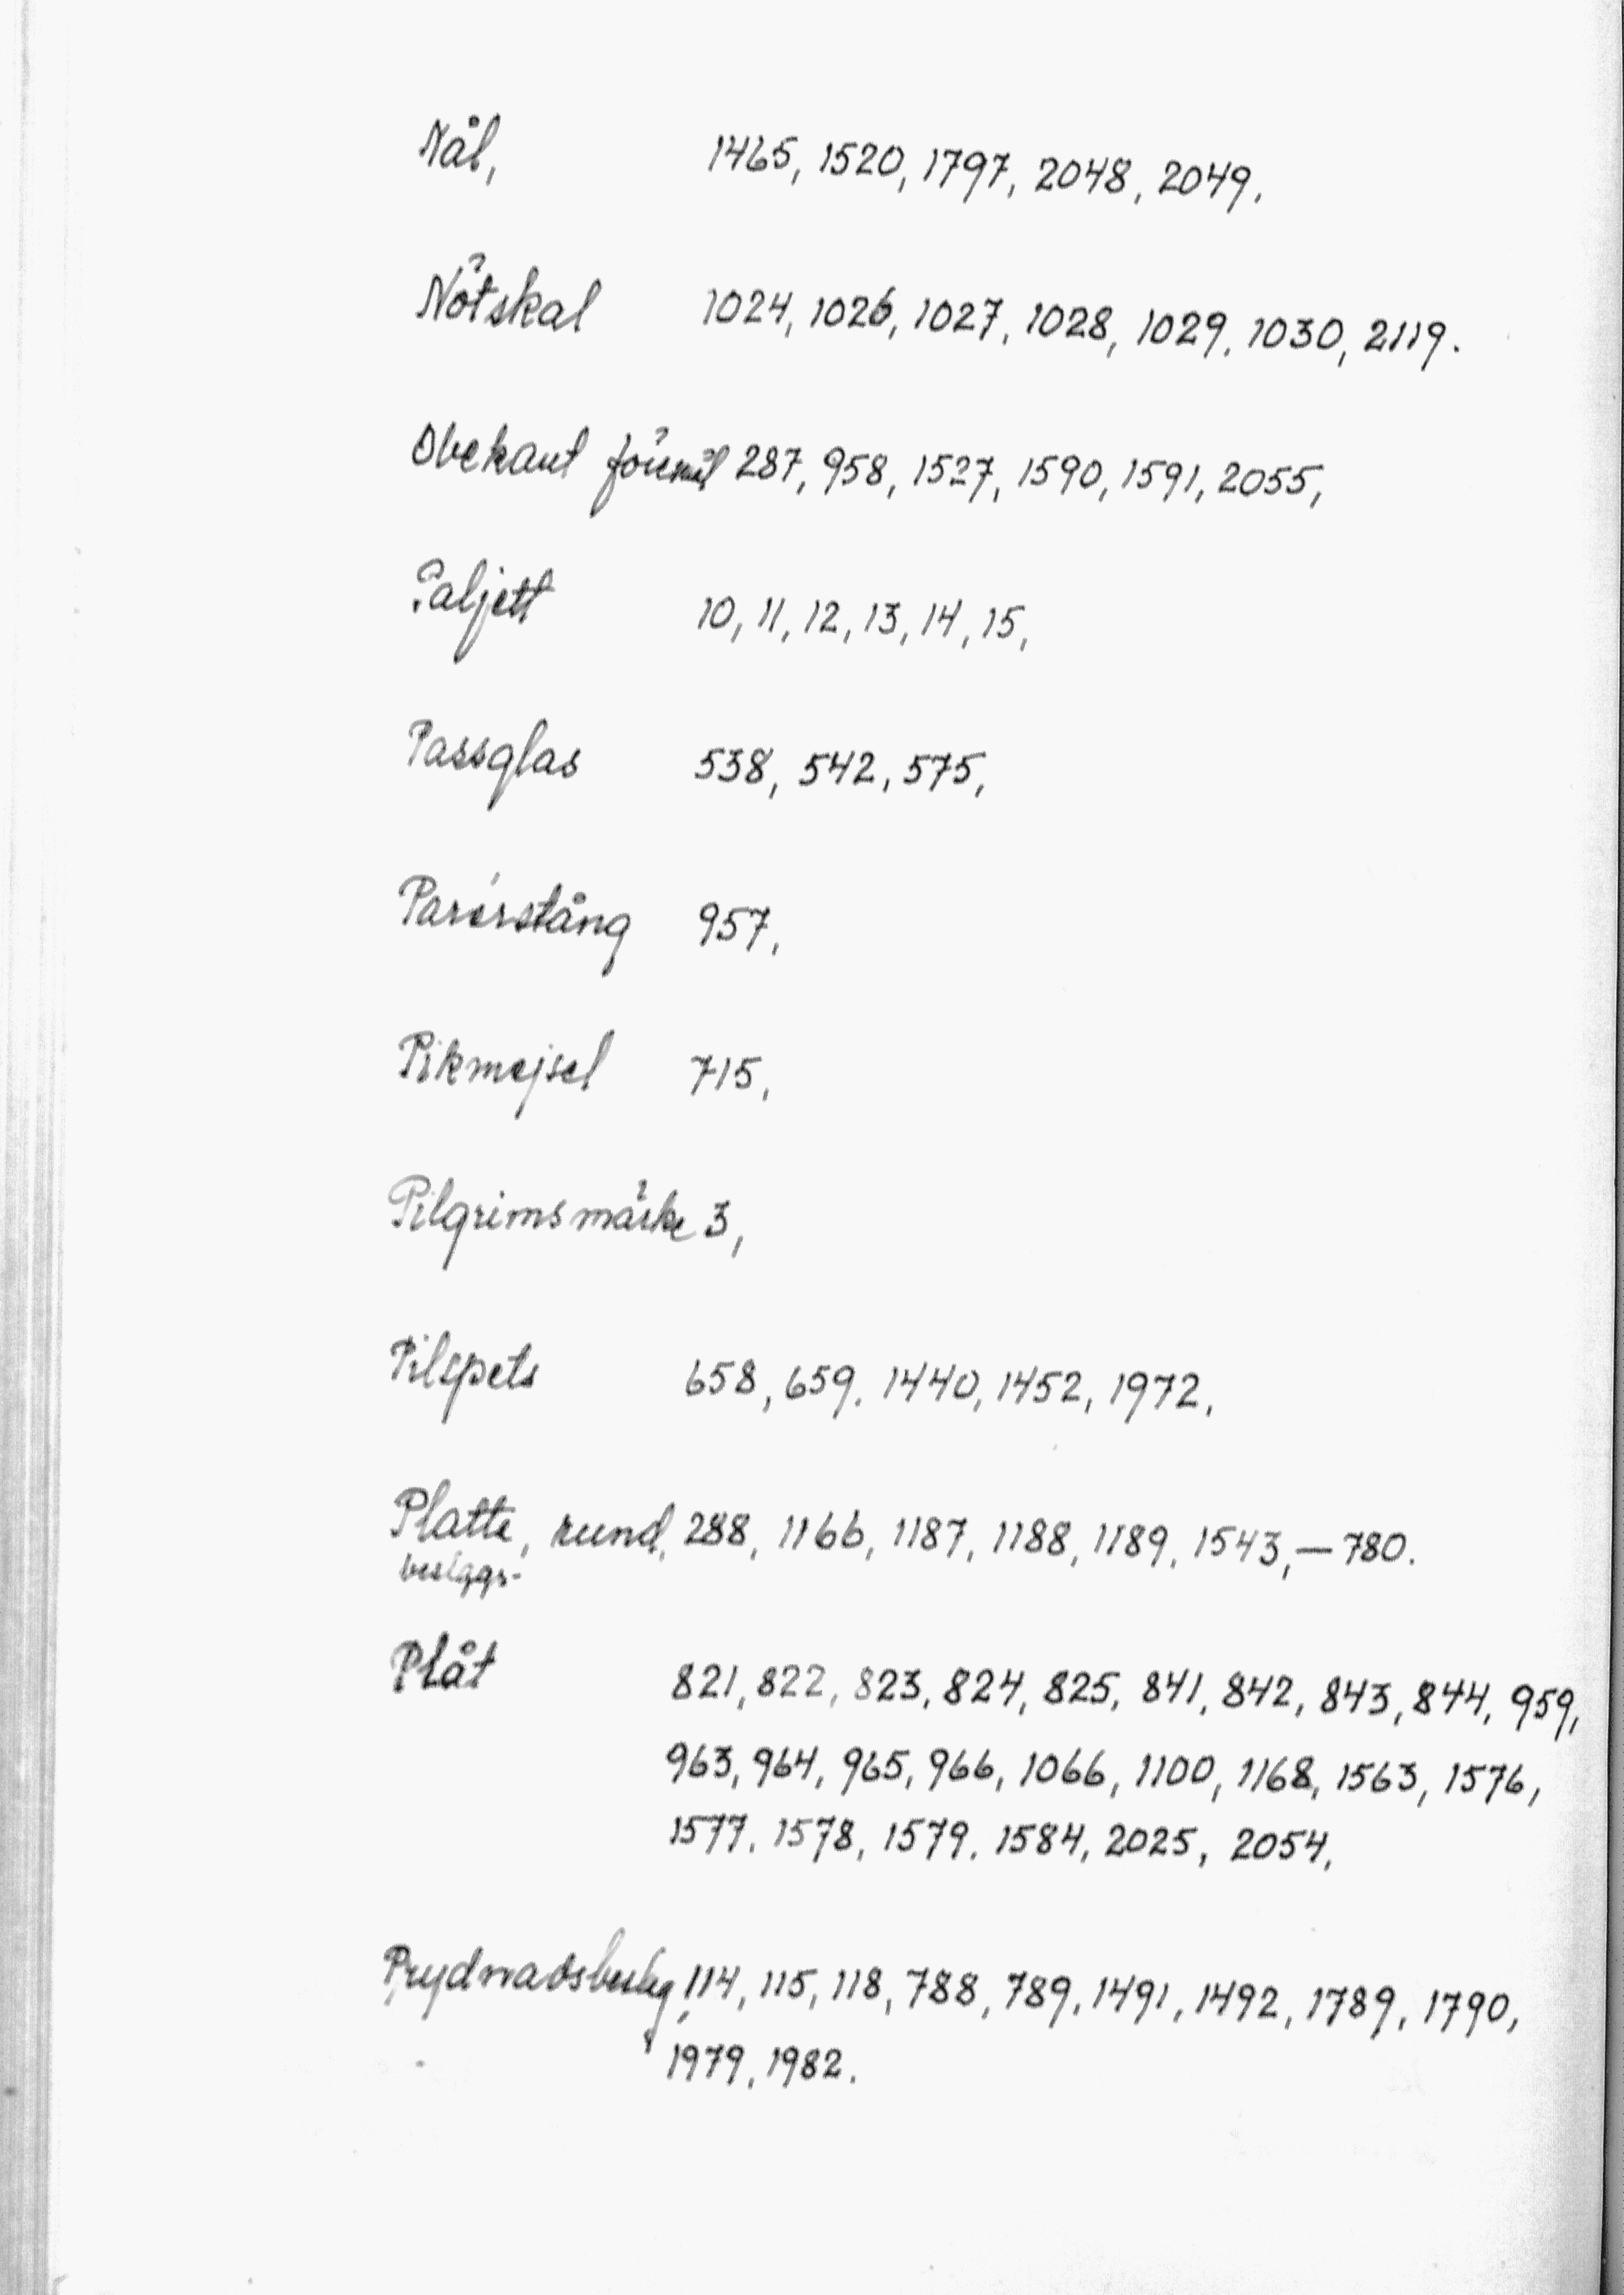 Nål, 1465, 1520, 1797, 2048, 2049.
Nötskal 1024, 1026, 1027, 1028, 1029, 1030, 2119.
Obekant föremål 287, 958, 1527, 1590, 1591, 2055,
Paljett 10, 11, 12, 13, 14, 15,
Passglas 538, 542, 575,
Parérstång 957,
Pikmejsel 715,
Pilgrimsmärke 3,
Pilspets 658, 659, 1440, 1452, 1972,
Platta, rund, 288, 1166, 1187, 1188, 1189, 1543, — 780.
Plåt 821, 822, 823, 824, 825, 841, 842, 843, 844, 959,
963, 964, 965, 966, 1066, 1100, 1168, 1563, 1576,
1577, 1578, 1579, 1584, 2025, 2054,
Prydnadsbeslag 114, 115, 118, 788, 789, 1491, 1492, 1789, 1790,
1979, 1982.